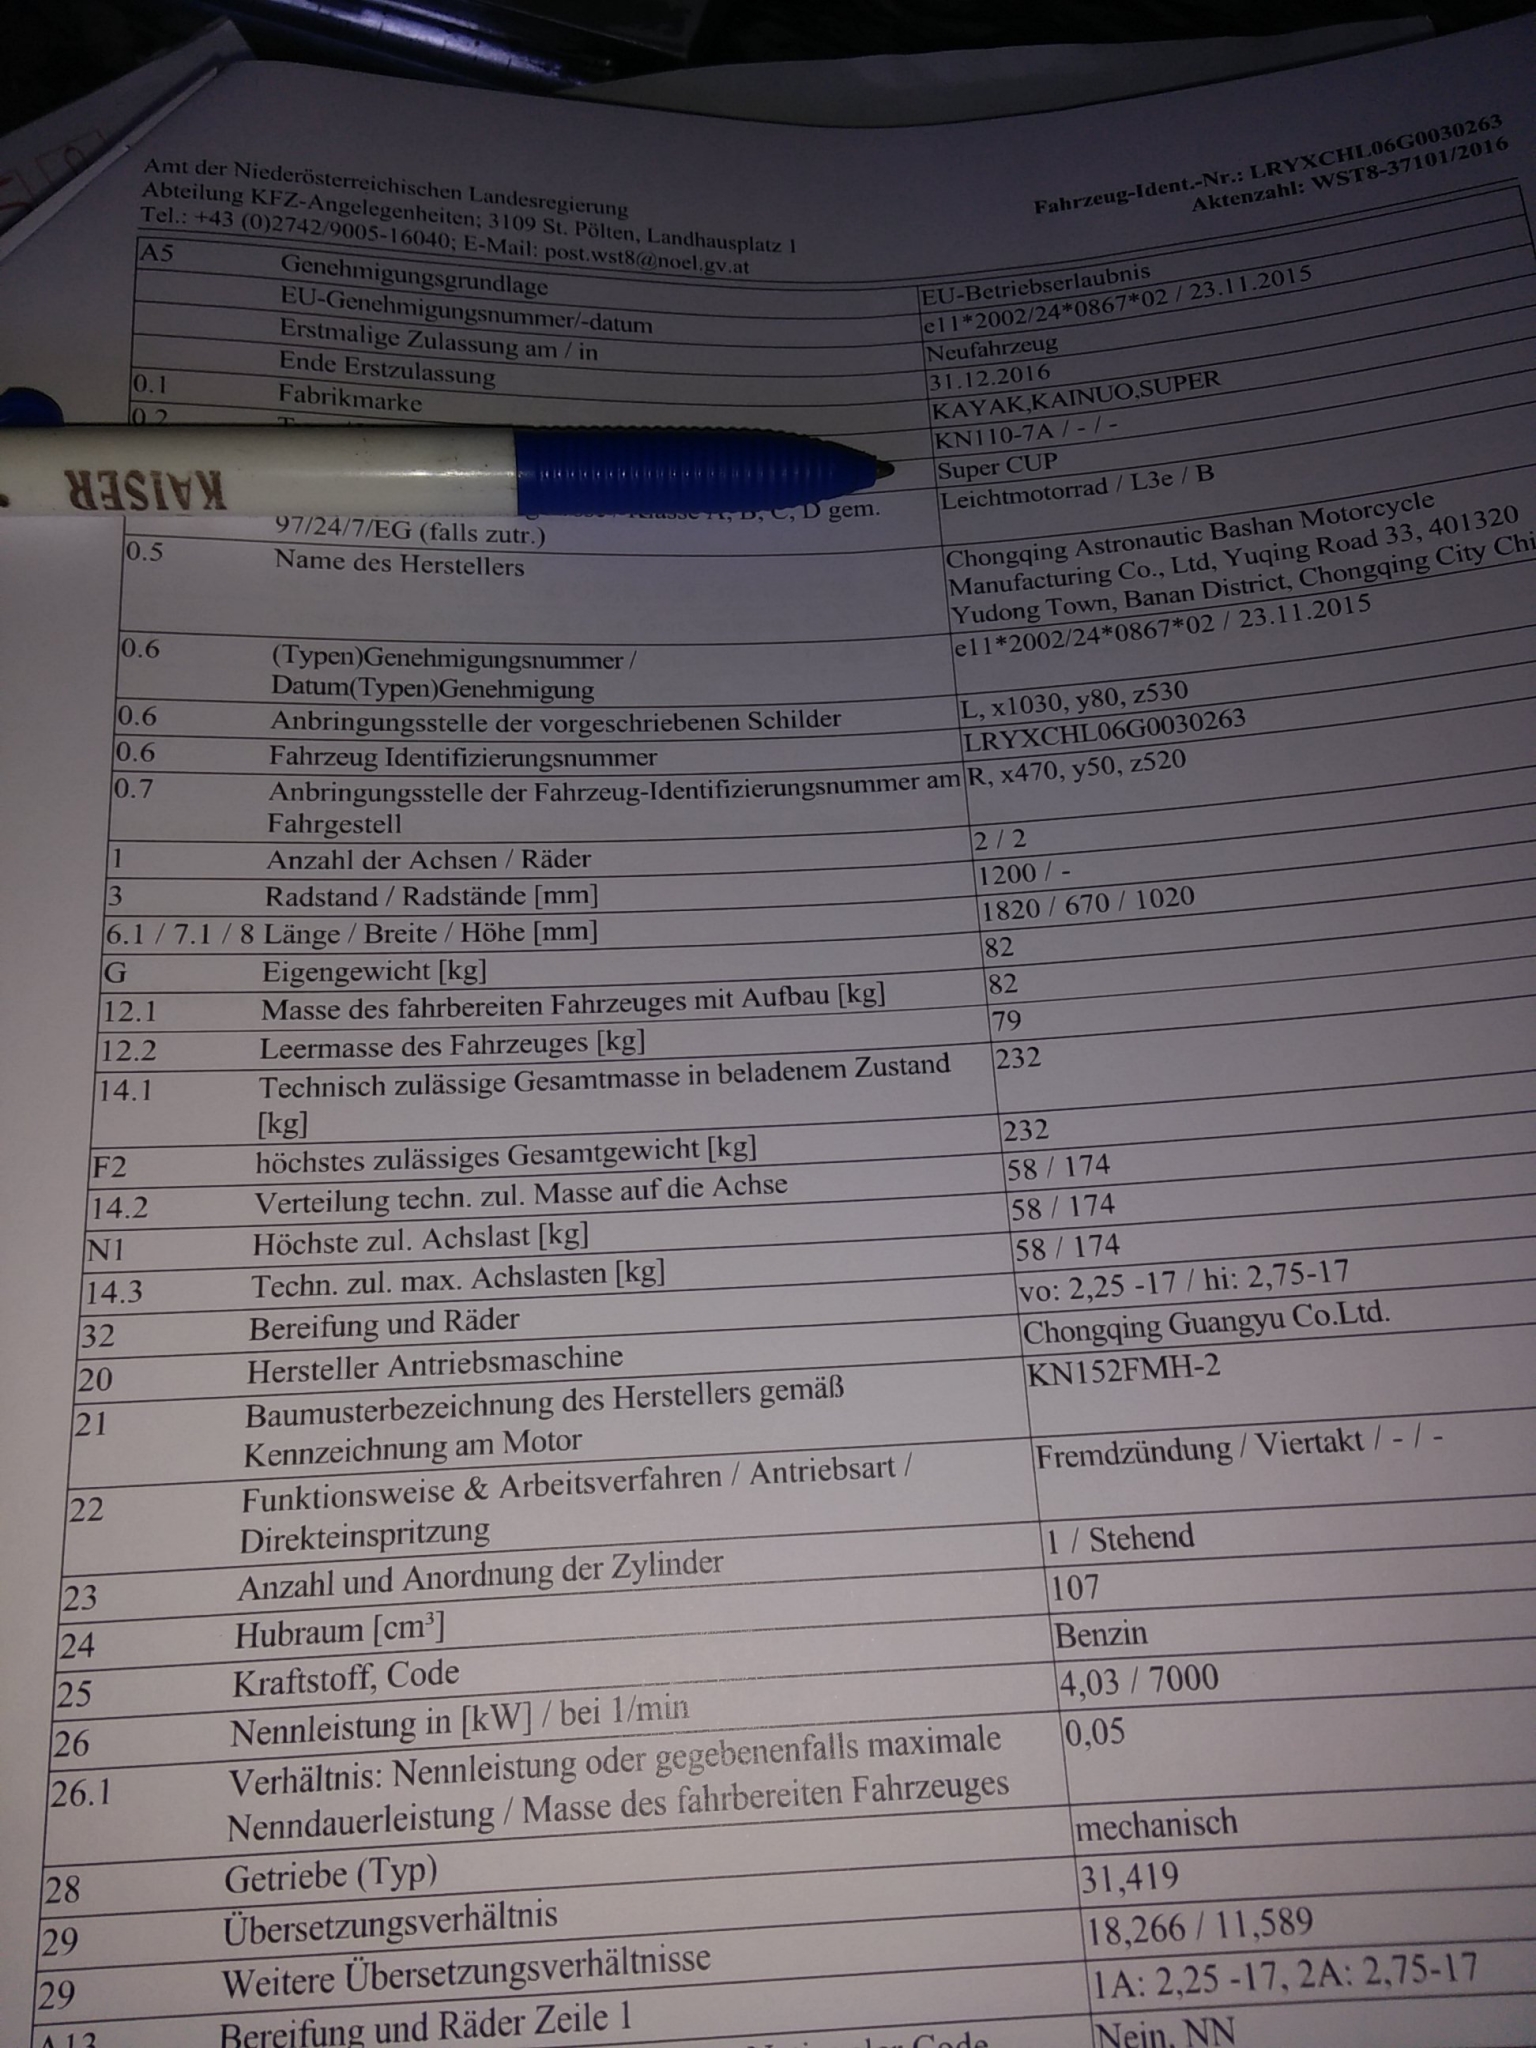 Fahrzeug-Ident.-Nr.: LRYXCHL06G0030263
Aktenzahl: WST8-37101/2016
Amt der Niederösterreichischen Landesregierung
Abteilung KFZ-Angelegenheiten; 3109 St. Pölten, Landhausplatz 1
Tel.: +43 (0)2742/9005-16040; E-Mail: post.wst8@noel.gv.at
A5 Genehmigungsgrundlage EU-Betriebserlaubnis
EU-Genehmigungsnummer/-datum e11*2002/24*0867*02 / 23.11.2015
Erstmalige Zulassung am / in Neufahrzeug
Ende Erstzulassung 31.12.2016
0.1 Fabrikmarke KAYAK,KAINUO,SUPER
0.2 KN110-7A / - / -
Super CUP
KAISER
Leichtmotorrad / L3e / B
Klasse A, B, C, D gem.
97/24/7/EG (falls zutr.)
0.5 Name des Herstellers Chongqing Astronautic Bashan Motorcycle
Manufacturing Co., Ltd, Yuqing Road 33, 401320
Yudong Town, Banan District, Chongqing City Chi
0.6 (Typen)Genehmigungsnummer / e11*2002/24*0867*02 / 23.11.2015
Datum(Typen)Genehmigung
0.6 Anbringungsstelle der vorgeschriebenen Schilder L, x1030, y80, z530
0.6 Fahrzeug Identifizierungsnummer LRYXCHL06G0030263
0.7 Anbringungsstelle der Fahrzeug-Identifizierungsnummer am R, x470, y50, z520
Fahrgestell
1 Anzahl der Achsen / Räder 2 / 2
3 Radstand / Radstände [mm] 1200 / -
6.1 / 7.1 / 8 Länge / Breite / Höhe [mm] 1820 / 670 / 1020
G Eigengewicht [kg] 82
12.1 Masse des fahrbereiten Fahrzeuges mit Aufbau [kg] 82
12.2 Leermasse des Fahrzeuges [kg] 79
14.1 Technisch zulässige Gesamtmasse in beladenem Zustand 232
[kg]
F2 höchstes zulässiges Gesamtgewicht [kg] 232
14.2 Verteilung techn. zul. Masse auf die Achse 58 / 174
N1 Höchste zul. Achslast [kg] 58 / 174
14.3 Techn. zul. max. Achslasten [kg] 58 / 174
32 Bereifung und Räder vo: 2,25 -17 / hi: 2,75-17
20 Hersteller Antriebsmaschine Chongqing Guangyu Co.Ltd.
21 Baumusterbezeichnung des Herstellers gemäß KN152FMH-2
Kennzeichnung am Motor
22 Funktionsweise & Arbeitsverfahren / Antriebsart / Fremdzündung / Viertakt / - / -
Direkteinspritzung
23 Anzahl und Anordnung der Zylinder 1 / Stehend
24 Hubraum [cm³] 107
25 Kraftstoff, Code Benzin
26 Nennleistung in [kW] / bei 1/min 4,03 / 7000
26.1 Verhältnis: Nennleistung oder gegebenenfalls maximale 0,05
Nenndauerleistung / Masse des fahrbereiten Fahrzeuges
28 Getriebe (Typ) mechanisch
29 Übersetzungsverhältnis 31,419
29 Weitere Übersetzungsverhältnisse 18,266 / 11,589
A13 Bereifung und Räder Zeile 1 1A: 2,25 -17, 2A: 2,75-17
Code Nein, NN